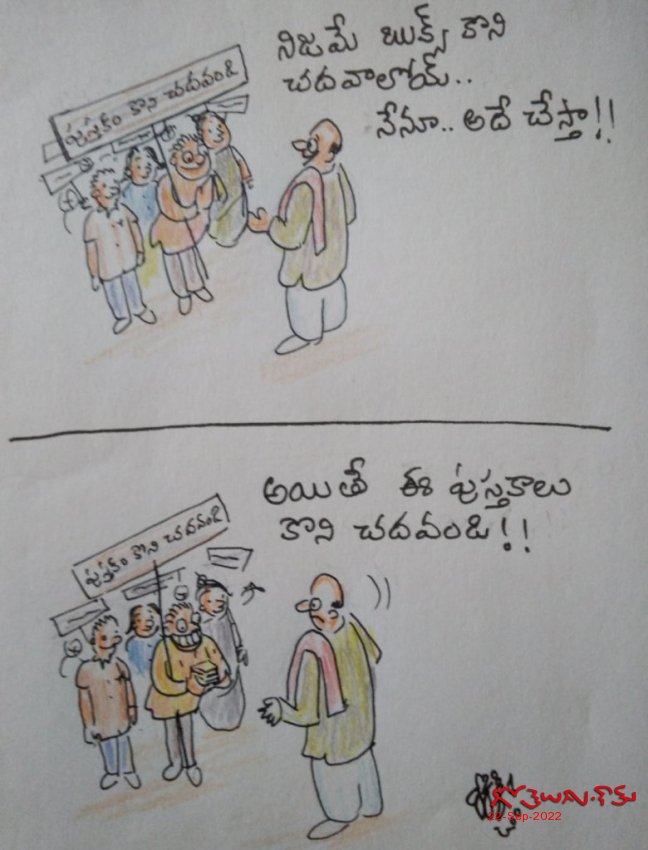 నిజమే బుక్స్ కొని
చదవాలోయ్..
నేనూ.. అదే చేస్తా!!
పుస్తకం కొని చదవండి
అయితే ఈ పుస్తకాలు
కొని చదవండి!!
పుస్తకం కొని చదవండి
గోతెలుగు.కామ్
22-Sep-2022